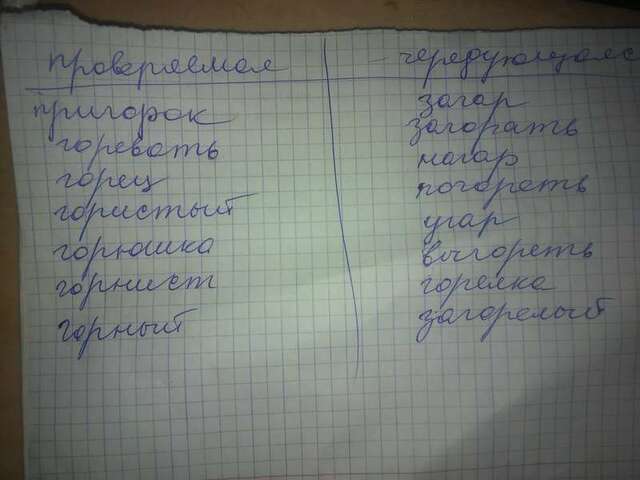 проверяемая
пригорок
горевать
горец
гористый
горюшка
горнист
горный
чередующаяс
загар
загорать
нагар
погореть
угар
выгореть
горелка
загорелый